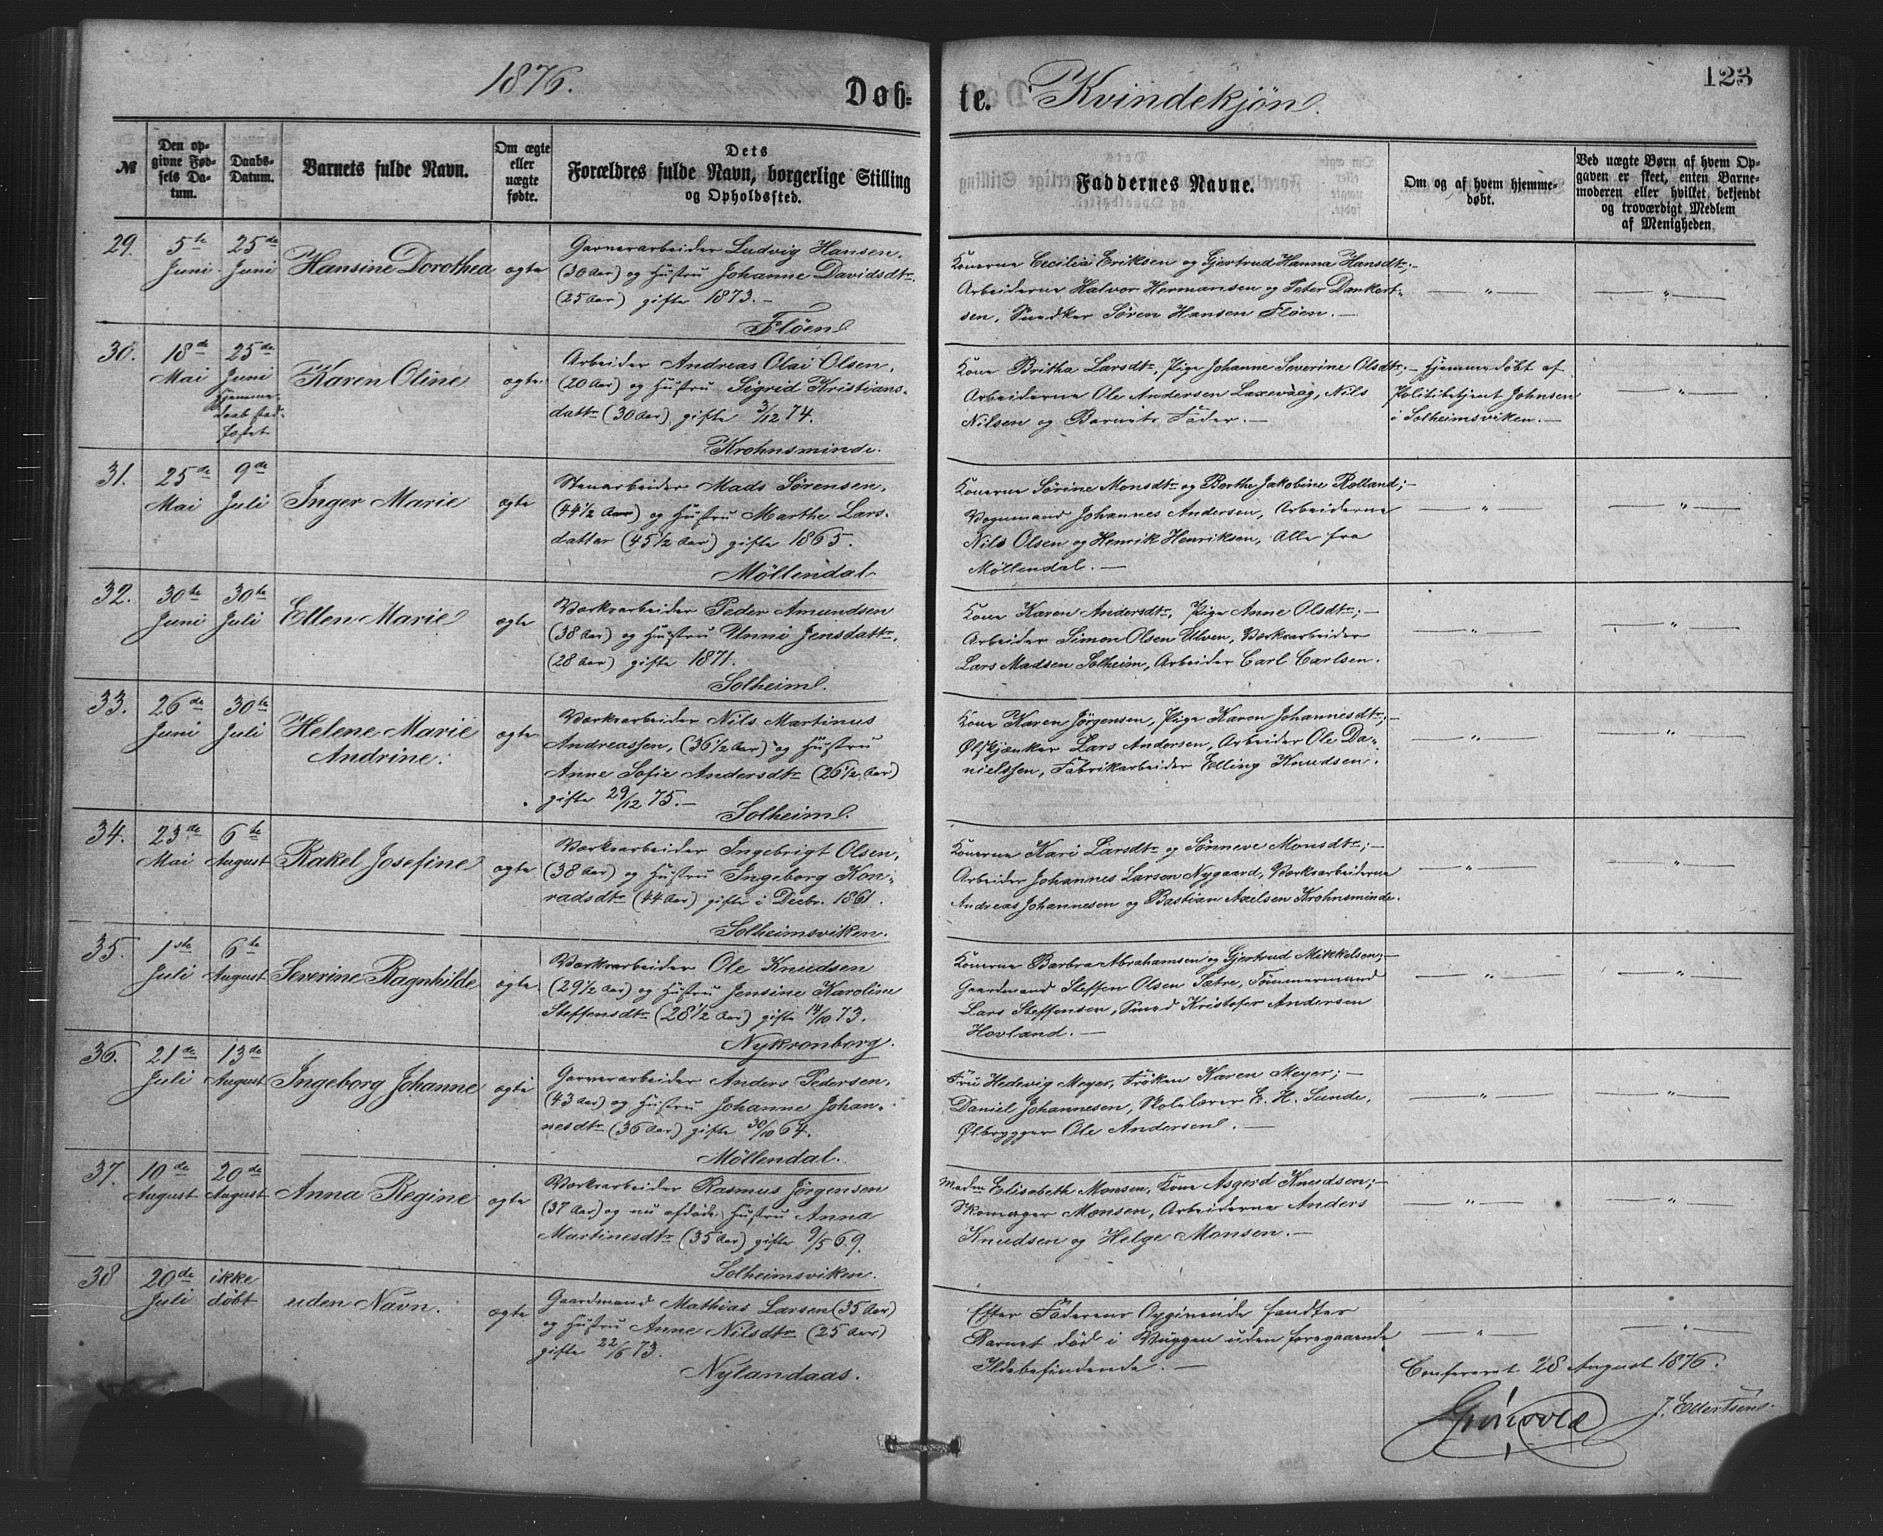 1876.
Døb=
te.
Kvindekjøn.
123
№
Den op-
givne Fød-
sels Da-
tum.
Daabs-
Datum.
Barnets fulde Navn.
Om ægte
eller
uægte
fødte.
Dets
Forældres fulde Navn, borgerlige Stilling
og Opholdssted.
Faddernes Navne.
Om og af hvem hjemme-
døbt.
Ved uægte Børn af hvem Op-
gaven er skeet, enten Barne-
moderen eller hvilket bekjendt
og troværdigt Medlem
af Menigheden.
29.
5te
Juni
25de
Juni
Hansine Dorothea
ægte
Garverarbeider Ludvig Hansen,
(30 Aar) og Hustru Johanne Davidsdtr.
(25 Aar) gifte 1873.-
Fløen.
Konerne Cecilia Eriksen og Gjertrud Hanna Hansdtr;-
Arbeiderne Halvor Hermansen og Peter Dankert-
sen, Snedker Sören Hansen Fløen.-
"
"
30.
18de
Mai
25de
Juni
Hjemme-
daab stad-
fæstet
Karen Oline
ægte
Arbeider Andreas Olai Olsen,
(20 Aar) og Hustru Sigrid Kristians-
datter (30 Aar) gifte 3/12 74.
Krohnsminde.
Kone Britha Larsdtr, Pige Johanne Severine Olsdtr;-
Arbeiderne Ole Andersen Laxevaag, Nils
Nilsen og Barnets Fader.-
Hjemmedøbt af
Politibetjent Johnsen
i Solheimsviken.-
"
31.
25de
Mai
9de
Juli
Inger Marie
ægte
Stenarbeider Mads Sørensen,
(44 1/2 Aar) og Hustru Marthe Lars-
datter (45 1/2 Aar) gifte 1865.
Møllendal
Konerne Sørine Monsdtr og Berthe Jakobine Rolland;-
Vognmand Johannes Andersen, Arbeiderne
Nils Olsen og Henrik Henriksen, Alle fra
Møllendal.-
"
"
32.
30te
Juni
30te
Juli
Ellen Marie
ægte
Værksarbeider Peder Amundsen
(38 Aar) og Hustru Unni Jensdattr.
(28 Aar) gifte 1871.
Solheim.
Kone Karen Andersdtr, Pige Anne Olsdtr;-
Arbeider Simon Olsen Ulven, Værksarbeider
Lars Madsen Solheim, Arbeider Carl Carlsen.
"
"
33.
26de
Juni
30te
Juli
Helene Marie
Andrine.
ægte
Værksarbeider Nils Martinus
Andreassen, (36 1/2 Aar) og Hustru
Anne Sofie Andersdtr (26 1/2 Aar)
gifte 29/12 75.-
Solheim.
Kone Karen Jørgensen, Pige Karen Johannesdtr;-
Ølskjænker Lars Andersen, Arbeider Ole Da-
nielssen, Fabrikarbeider Elling Knudsen.
"
"
34.
23de
Mai
6te
August
Rakel Josefine
ægte
Værksarbeider Ingebrigt Olsen,
(38 Aar) og Hustru Ingeborg Kon-
radsdtr (44 Aar) gifte i Decbr. 1861.
Solheimsviken.
Konerne Kari Larsdtr og Sønneve Monsdtr;-
Arbeider Johannes Larsen Nygaard, Værksarbeiderne
Andreas Johannesen og Bastian Axelsen Krohnsminde.
"
"
35.
1ste
Juli
6te
August
Severine Ragnhilde
ægte
Værksarbeider Ole Knudsen
(29 1/2 Aar) og Hustru Jensine Karoline
Steffensdtr (28 1/2 Aar) gifte 14/10 73.
Nykronborg.
Konerne Barbra Abrahamsen og Gjertrud Mikkelsen;-
Gaardmand Steffen Olsen Sætre, Tømmermand
Lars Steffensen, Smed Kristofer Andersen
Hovland.-
"
"
36.
21de
Juli
13de
August
Ingeborg Johanne
ægte
Garverarbeider Anders Pedersen,
(43 Aar) og Hustru Johanne Johan-
nesdtr (36 Aar) gifte 30/10 64.
Møllendal.
Fru Hedevig Meyer, Frøken Karen Meyer;-
Daniel Johannesen, Skolelærer E. H. Sunde,
Ølbrygger Ole Andersen.-
"
"
37.
10de
August
20de
August
Anna Regine
ægte
Værksarbeider Rasmus Jörgensen
(37 Aar) og nu afdøde Hustru Anna
Martinesdtr (35 Aar) gifte 9/5 69.
Solheimsviken.
Madm Elisabeth Monsen, Kone Asgerd Knudsen;-
Skomager Monsen, Arbeiderne Anders
Knudsen og Helge Monsen.-
"
"
38
20de
Juli
ikke
døbt
uden Navn.
ægte
Gaardmand Mathias Larsen (35 Aar)
og Hustru Anne Nilsdtr (25 Aar)
gifte 22/6 73.
Nylandaas.
Efter Faderens Opgivende fandtes
Barnet død i Vuggen uden foregaaende
Ildebefindende.-
"
"
Confereret 28 August 1876.
Grönvold